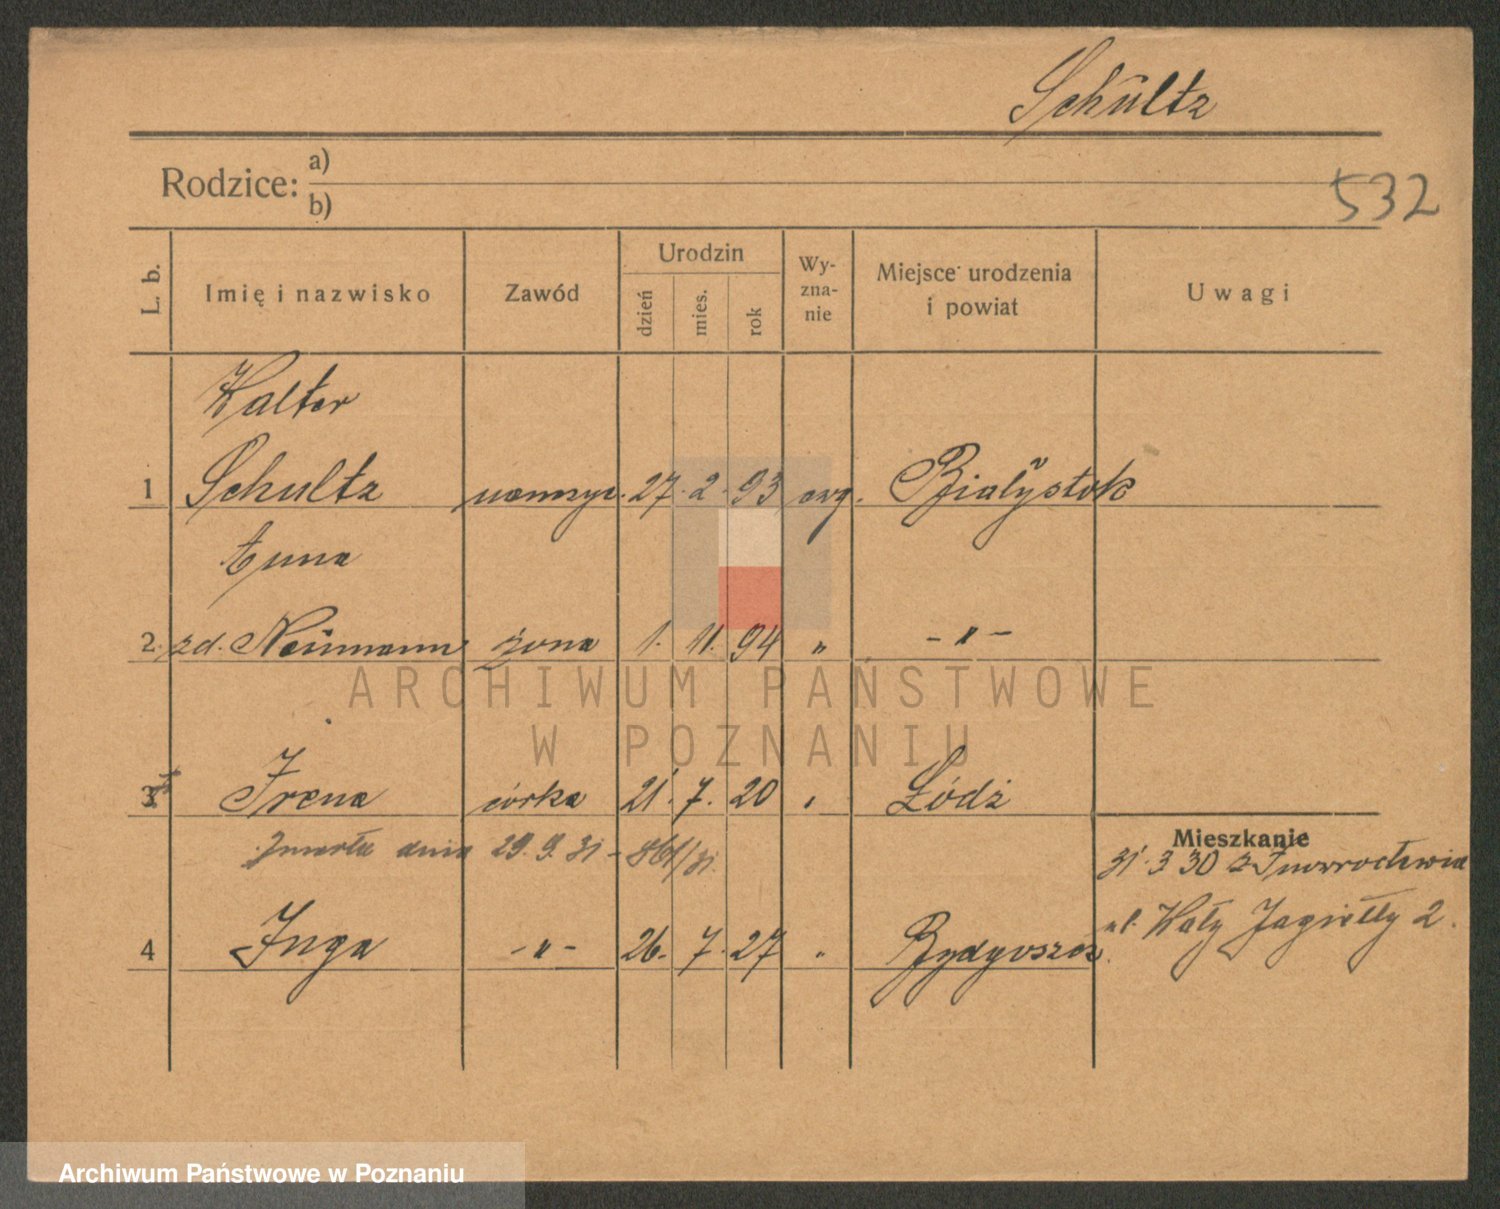 Schultz
Rodzice: a)
b)
532
L. b.
Imię i nazwisko
Zawód
Urodzin
dzień
mies.
rok
Wy-
zna-
nie
Miejsce urodzenia
i powiat
Uwagi
Walter
1 Schultz nauczyc. 27. 2. 93 ewg. Białystok
Anna
2. zd. Neumann żona 1. 11. 94 „ - „ -
3 Irena córka 21. 7. 20 „ Łódź
Zmarła dnia 29. 9. 31 -
Mieszkanie
31. 3 30 z Inowrocławia
ul. Wały Jagiełły 2.
4 Inga - „ - 26. 7. 27 „ Bydgoszcz.
ARCHIWUM PAŃSTWOWE
W POZNANIU
Archiwum Państwowe w Poznaniu